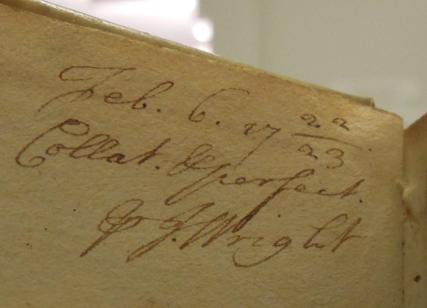 Feb. 6. 17 22/23.
Collat. & perfect.
P J. Wright